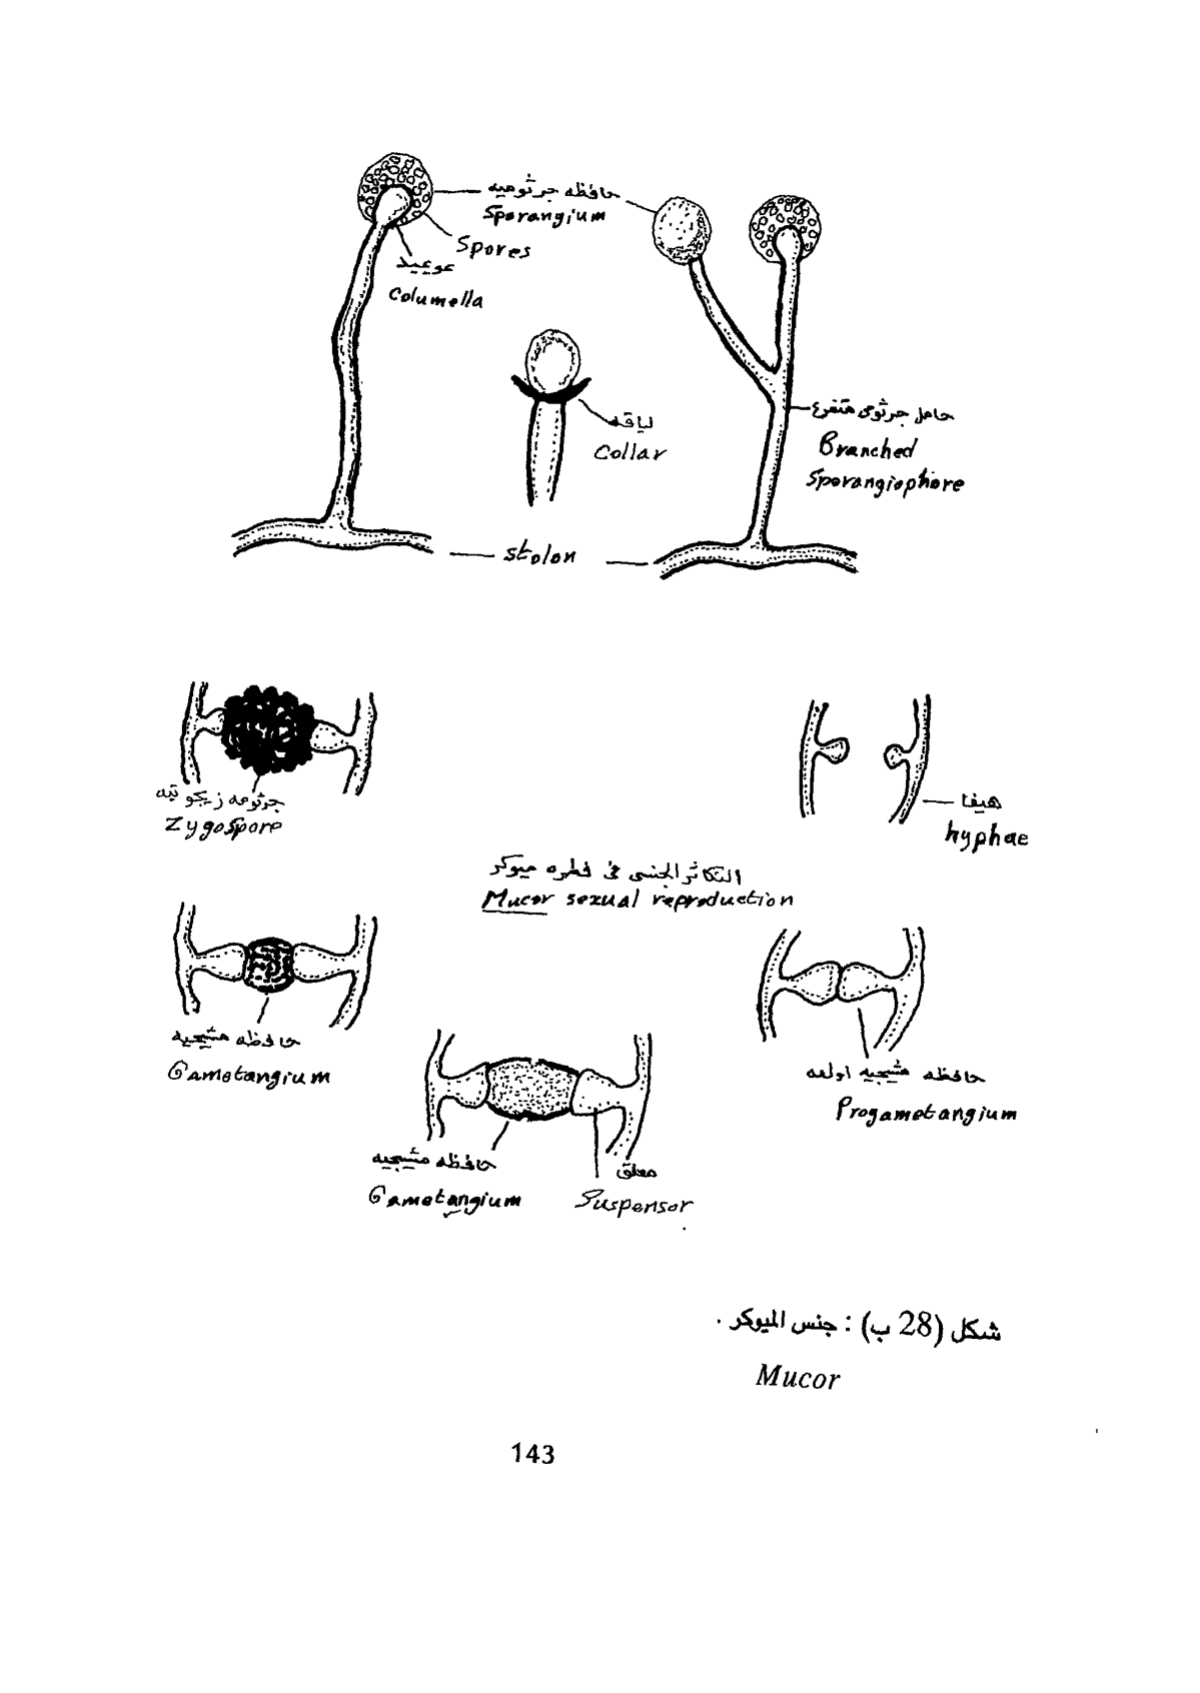 حافظه جرثوميه
Sporangium
Spores
عويميد
Columella
لياقه
Collar
حامل جرثومى متفرع
Branched
Sporangiophore
stolon
جرثومه زيجوتيه
Zygospore
هيفا
hyphae
التكاثر الجنسى فى فطره ميوكر
Mucor sexual reproduction
حافظه مشيجيه
Gametangium
حافظه مشيجيه اوليه
Progametangium
حافظه مشيجيه
Gametangium
معلق
Suspensor
شكل (28 ب) : جنس الميوكر .
Mucor
143